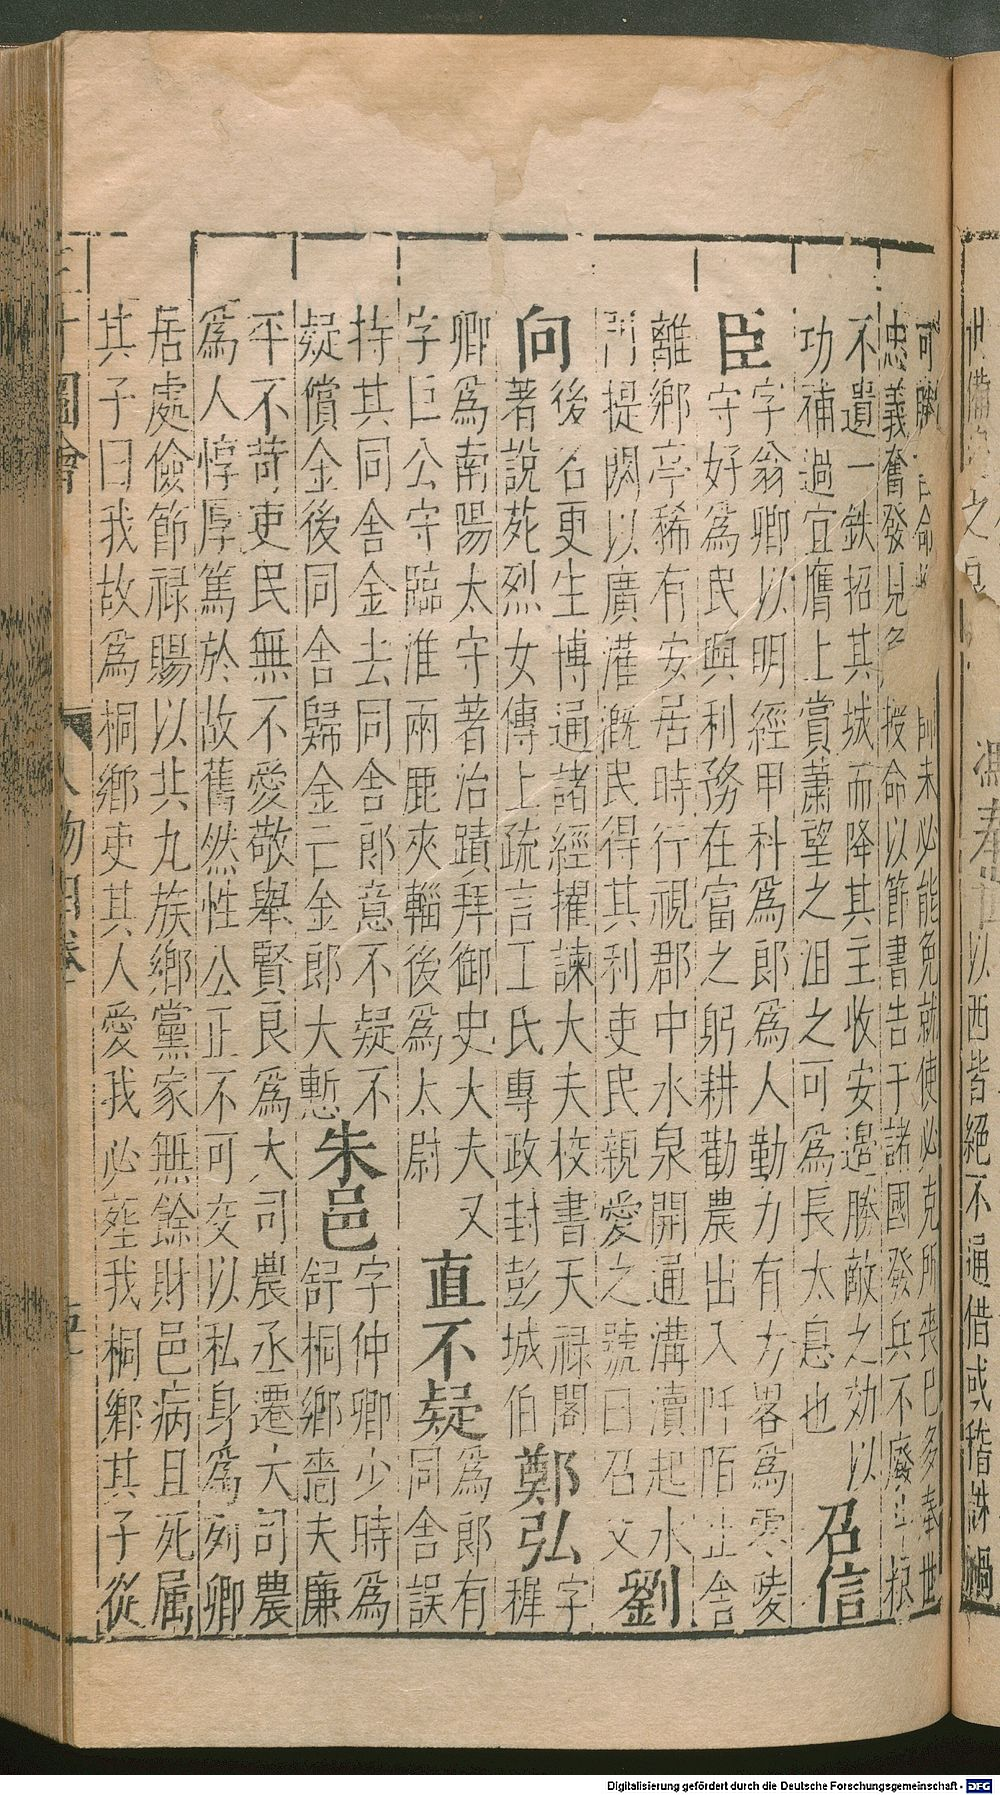 可勝 命 師未必能免就使必克所喪巳多奉世
忠義奮發見 授命以節書告于諸國發兵不廢 粮
不遺一鉄招其城而降其主收安邉勝敵之効以
功補過宜膺上賞蕭望之沮之可爲長太息也召信
臣字翁卿以明經甲科爲郎爲人勤力有方畧爲零陵
守好爲民興利務在富之躬耕勸農出入阡陌止舍
離鄉亭稀有安居時行視郡中水泉開通溝瀆起水
門提閼以廣灌溉民得其利吏民親愛之號曰召父劉
向後名更生博通諸經擢諫大夫校書天祿閣
著說苑烈女傳上疏言工氏專政封彭城伯鄭弘字穉
卿爲南陽太守著治蹟拜御史大夫又
字巨公守臨淮兩鹿夾轓後爲太尉直不疑爲郎有同舍誤
持其同舍金去同舍郎意不疑不
疑償金後同舍歸金亡金郎大慙朱邑字仲卿少時爲舒桐鄉嗇夫廉
平不苛吏民無不愛敬舉賢良爲大司農丞遷大司農
爲人惇厚篤於故舊然性公正不可交以私身爲列卿
居處儉節祿賜以共九族鄉黨家無餘財邑病且死属
其子曰我故爲桐鄉吏其人愛我必塟我桐鄉其子從
圖會 人物四卷
之
馮奉世
以西皆絕不通借或稽誅禍
Digitalisierung gefördert durch die Deutsche Forschungsgemeinschaft - DFG